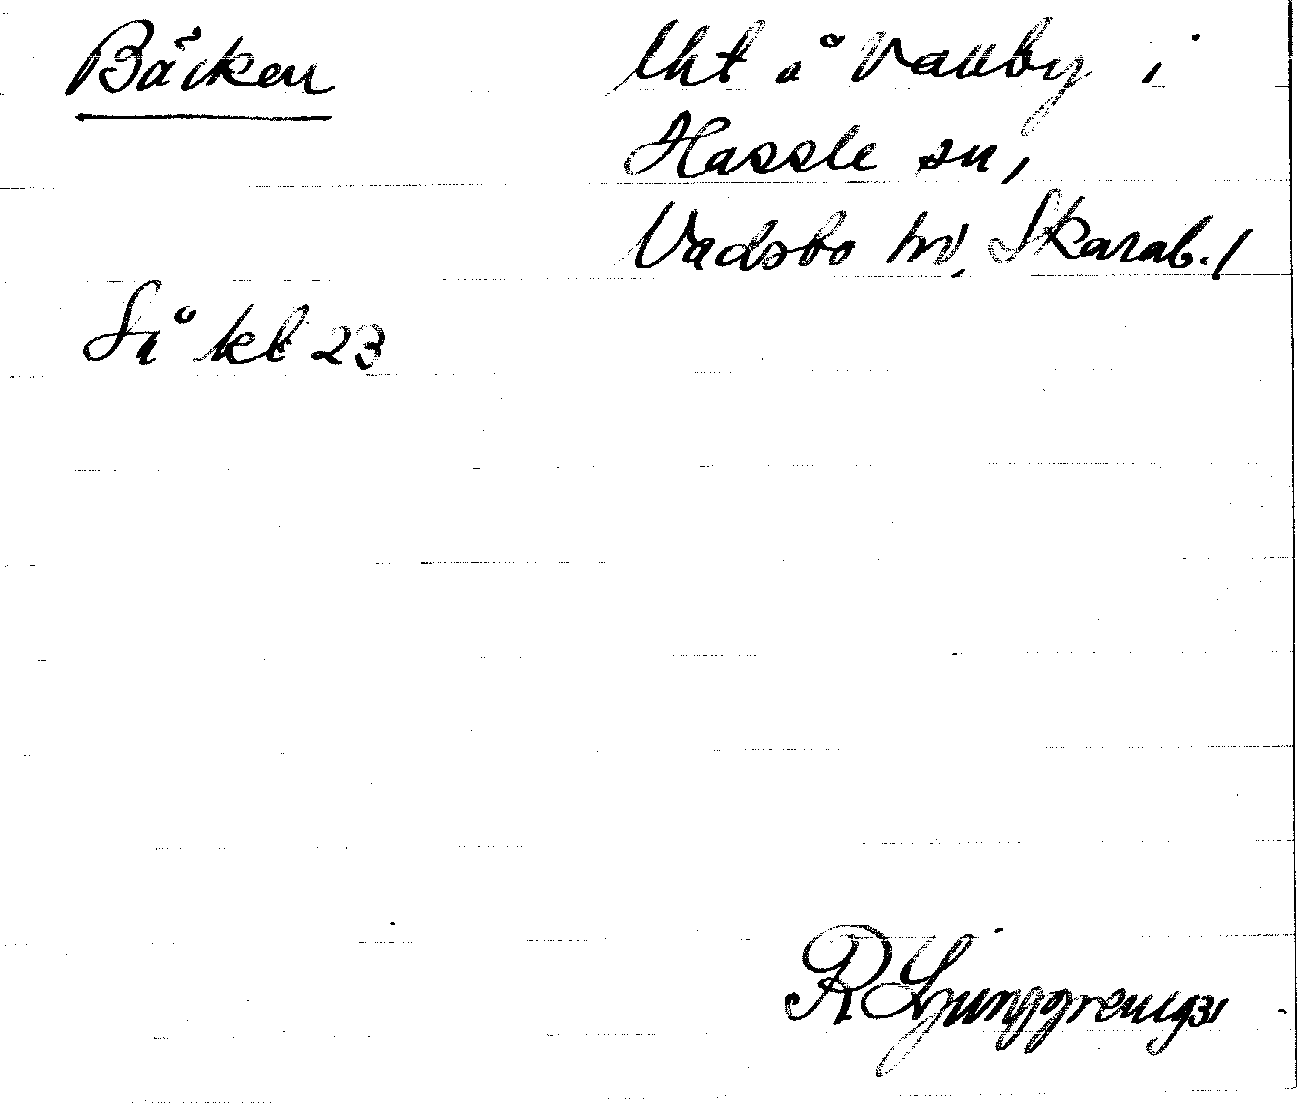 Bäcken
lht å Vallby i
Hassle sn,
Vadsbo hd, Skarab. l
Så kl 23
R Ljunggren 1931